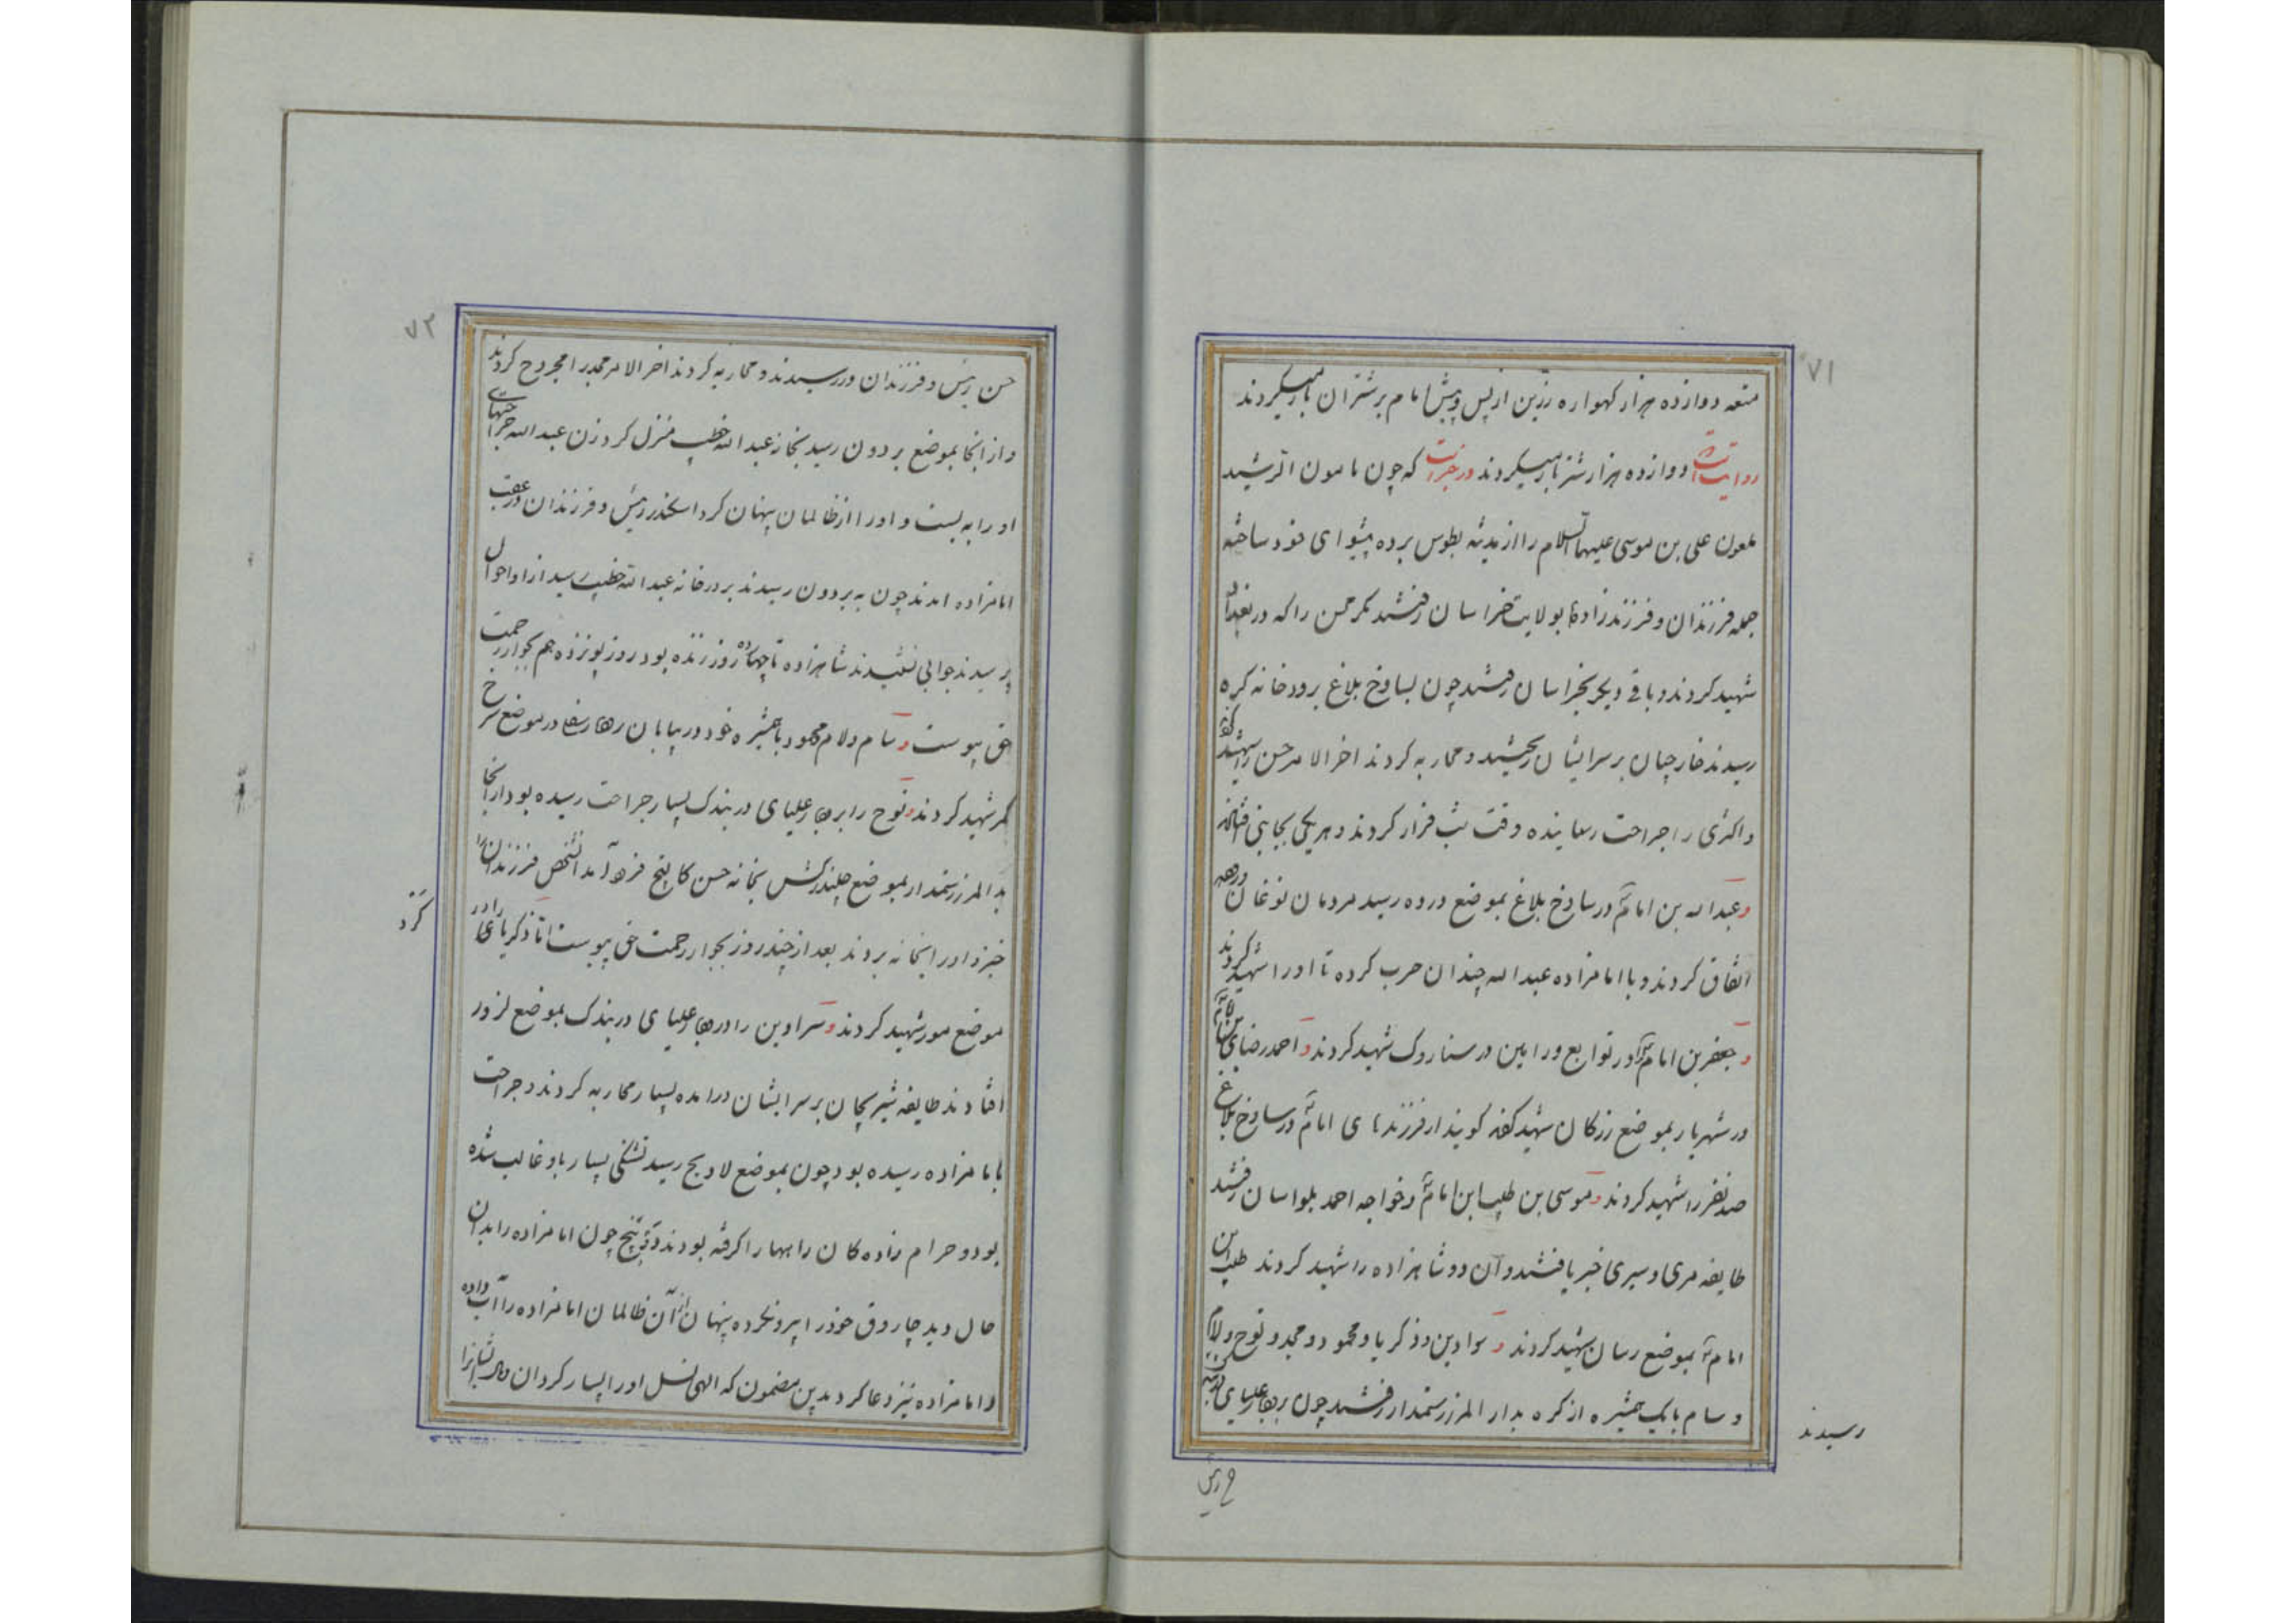 ۷۱
متعه دوازده هزار کهواره زرین از پس و پیش امام بر شتران بار میکردند
روایتست دوازده هزار شتر بار میکردند در خبراست که چون مامون الرشید
ملعون علی بن موسی علیهما السلام را از مدینه بطوس برده پیشوای خود ساخته
جمله فرزندان و فرزندزادها بولایت خراسان رفتند مکر حسن را که در بغداد
شهید کردند و باقی دیکر بخراسان رفتند چون بساوخ بلاغ برودخانه کره
رسیدند خارجیان بر سر ایشان ریختند و محاربه کردند اخر الامر حسن را شهید کرد
و اکثری را جراحت رسانیده وقت شب فرار کردند و هر یکی بجانبی افتادند
و عبدالله بن امام در ساوخ بلاغ بموضع دروه رسید مردمان نوغان و دروهه
اتفاق کردند و با امامزاده عبدالله چندان حرب کرده تا اورا شهید کردند
و جعفر بن امام در توابع ورامین در سناروک شهید کردند و احمد رضای بن امام
در شهریار بموضع رزکان شهید کفته کویند از فرزندهای امام در ساوخ بلاغ
صد نفر را شهید کردند و موسی بن طیب ابن امام و خواجه احمد بلواسان رفتند
طایفه مری و سیری خبر یافتند و آن دو شاهزاده را شهید کردند طیب ابن
امام بموضع رسان شهید کردند و سرادین و ذکریا و محمود و محمد و نوح و لام
و سام با یک همشیره از کره بدار المرز رستمدار رفتند چون برهار علیای
رسیدند
۷۲
حسن رئیس و فرزندان در رسیدند و محاربه کردند اخر الامر محمد را مجروح کردند
و از انجا بموضع بردون رسید بخانه عبدالله خطیب منزل کرد زن عبدالله جراحتهای
او را به بست و اورا از ظالمان پنهان کرد اسکندر رئیس و فرزندان در عقب
امامزاده امدند چون به بردون رسیدند بر در خانه عبدالله خطیب رسید از او احوال
پرسیدند جوابی نشنیدند شاهزاده تا چهارده روز زنده بود روز پونزدهم بجوار رحمت
حق پیوست و سام و لام محمود با همشیره خود در بیابان رهار سفلی در موضع سرخ
کمر شهید کردند و نوح را برهار علیای در بندک بسیار جراحت رسیده بود از انجا
بدالمرز رستمدار بموضع چلندر کش بخانه حسن کالیج فرود آمد آنشخص فرزندان را
خبر کرد و اورا بخانه بردند بعد از چند روز بجوار رحمت حق پیوست اما ذکریا را در
موضع مور شهید کردند و سرادین را در رهار علیای در بندک بموضع لزور
افتادند طایفه شیربجان بر سر ایشان درامده بسیار محاربه کردند و جراحت
بامامزاده رسیده بود چون بموضع لاویج رسید تشنکی بسیار باو غالب شده
بود و حرام زاده کان راهها را کرفته بودند چون امامزاده را بدان
حال دید چاروق خودرا بیرونکرده پنهان از آن ظالمان امامزاده را آب داده
و امامزاده نیز دعا کرد بدین مضمون که الهی نسل اورا بسیار کردان